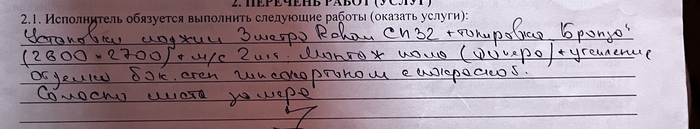 2. ПЕРЕЧЕНЬ РАБОТ (УСЛУГ)
2.1. Исполнитель обязуется выполнить следующие работы (оказать услуги):
Установка лоджии 3 метра Rehau + тонировка "Бронза"
(2800 × 2700) + м/с 2 шт. Монтаж пола (фанера) + утепление
Отделка бок. стен гипсокартоном с покраской.
листа замера